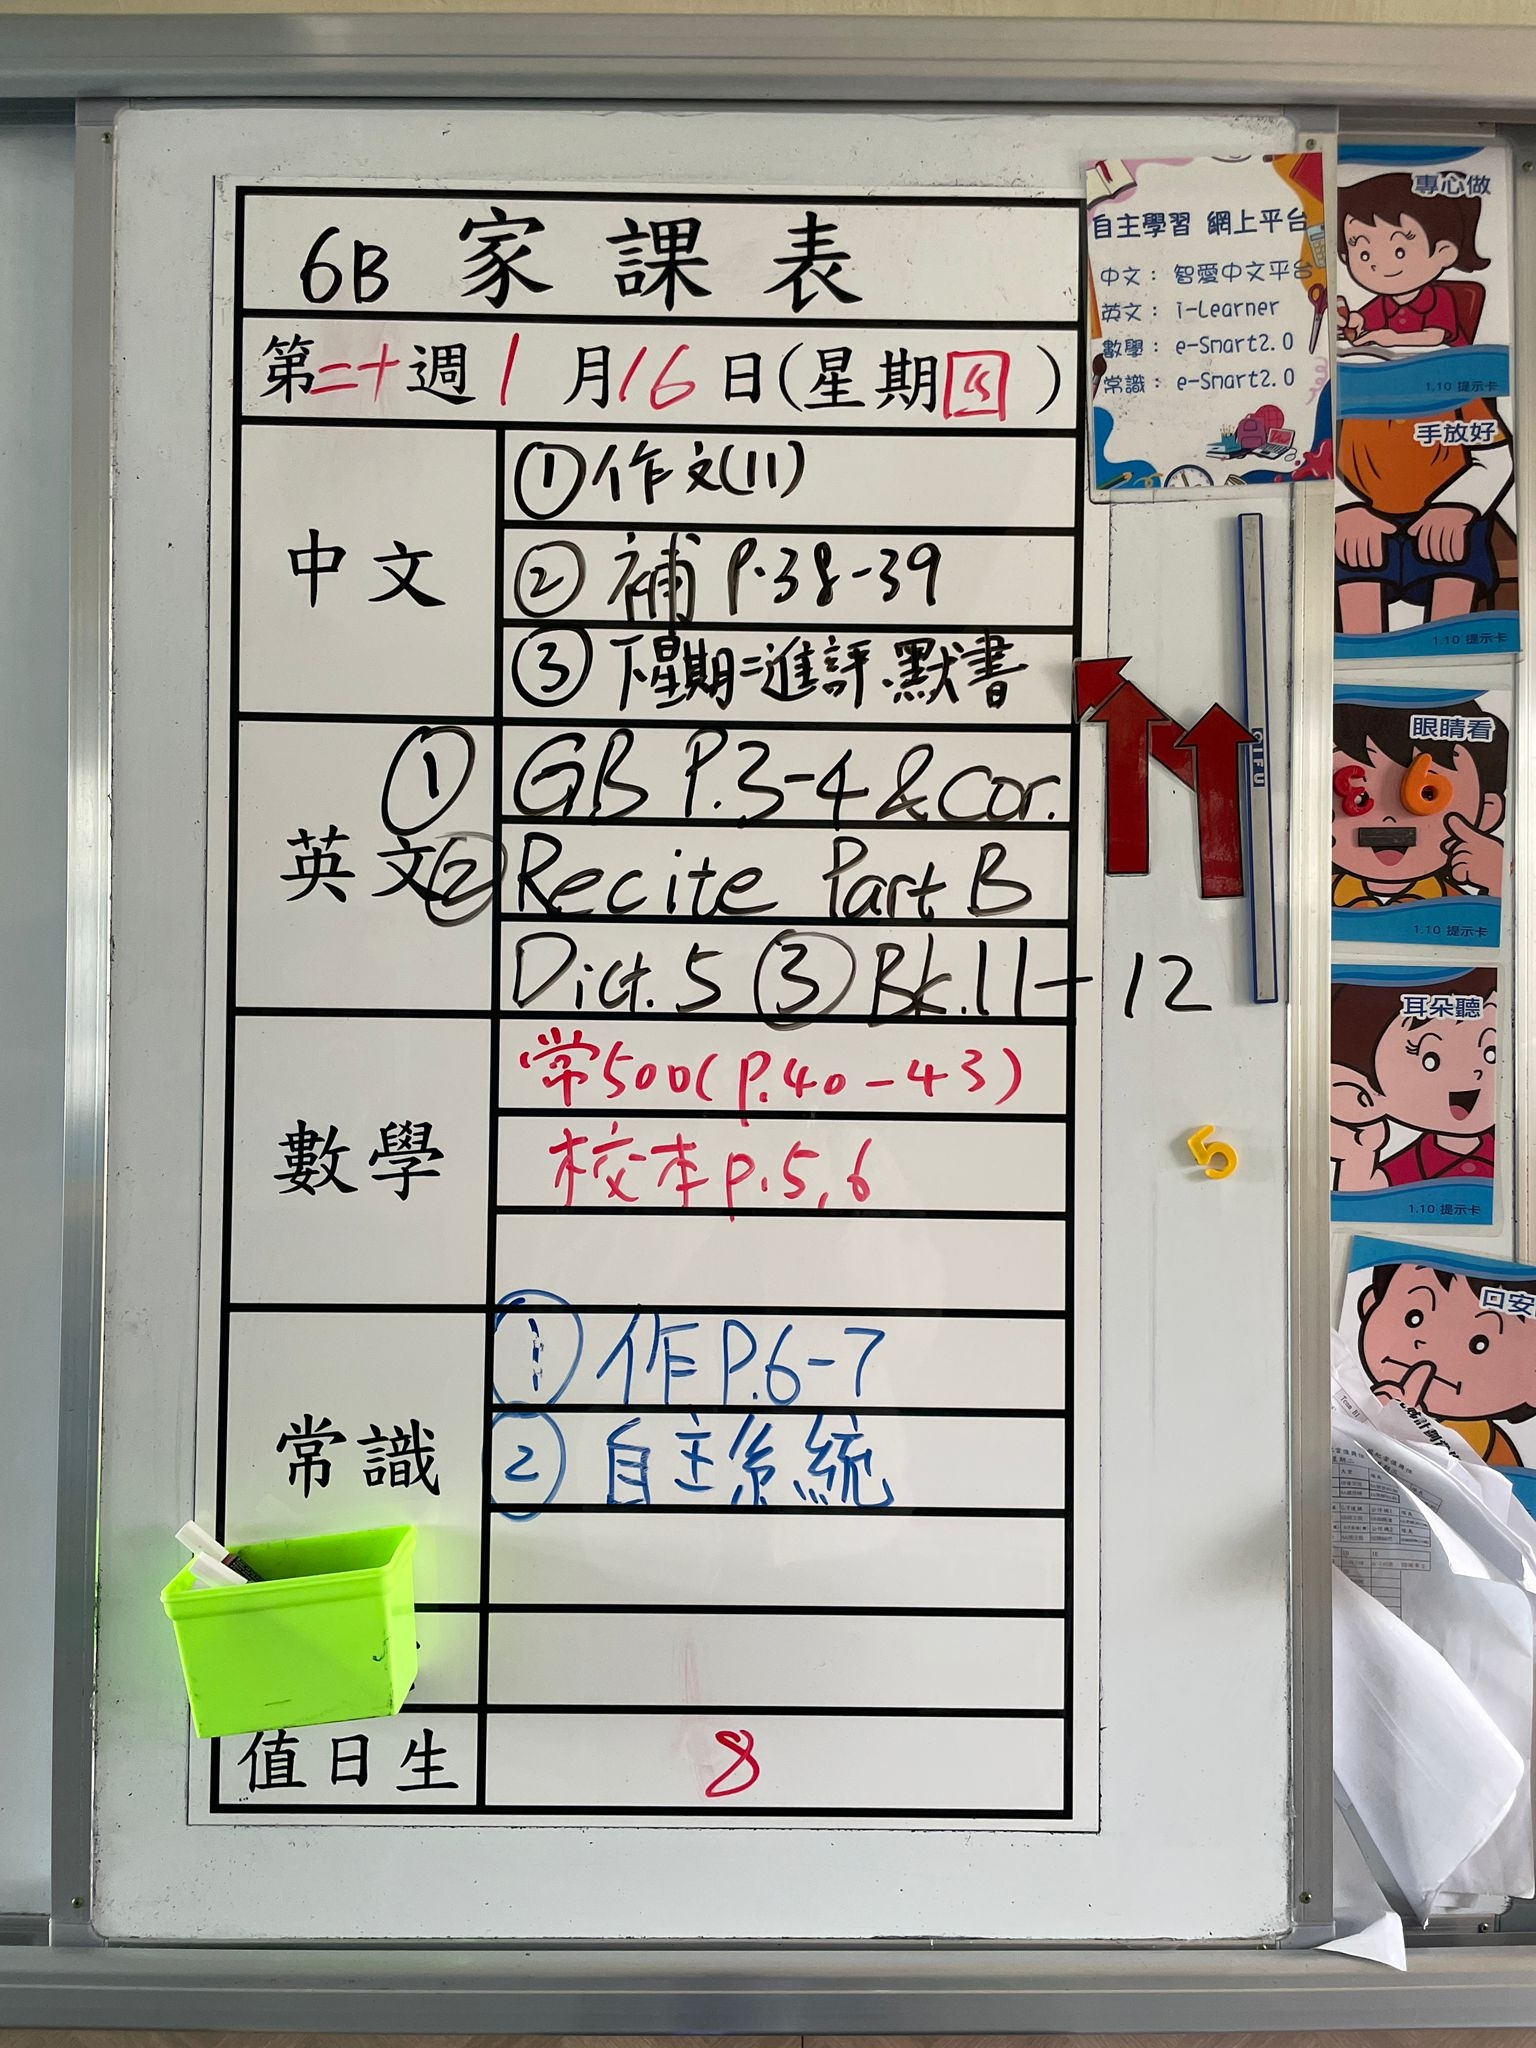 6B 家課表
第二十週 1月16日(星期四)
中文
①作文(11)
②補 P.38-39
③下星期二進評.默書
英文
① GB P.3-4 & cor.
② Recite Part B
Dict.5 ③ Bk.11-12
數學
常500(p.40-43)
校本p.5,6
常識
①作P.6-7
②自主系統
值日生
8
自主學習 網上平台
中文： 智愛中文平台
英文： i-Learner
數學： e-Smart2.0
常識： e-Smart2.0
QIFU
5
專心做
1.10 提示卡
手放好
1.10 提示卡
眼睛看
3 6
1.10 提示卡
耳朵聽
1.10 提示卡
口安